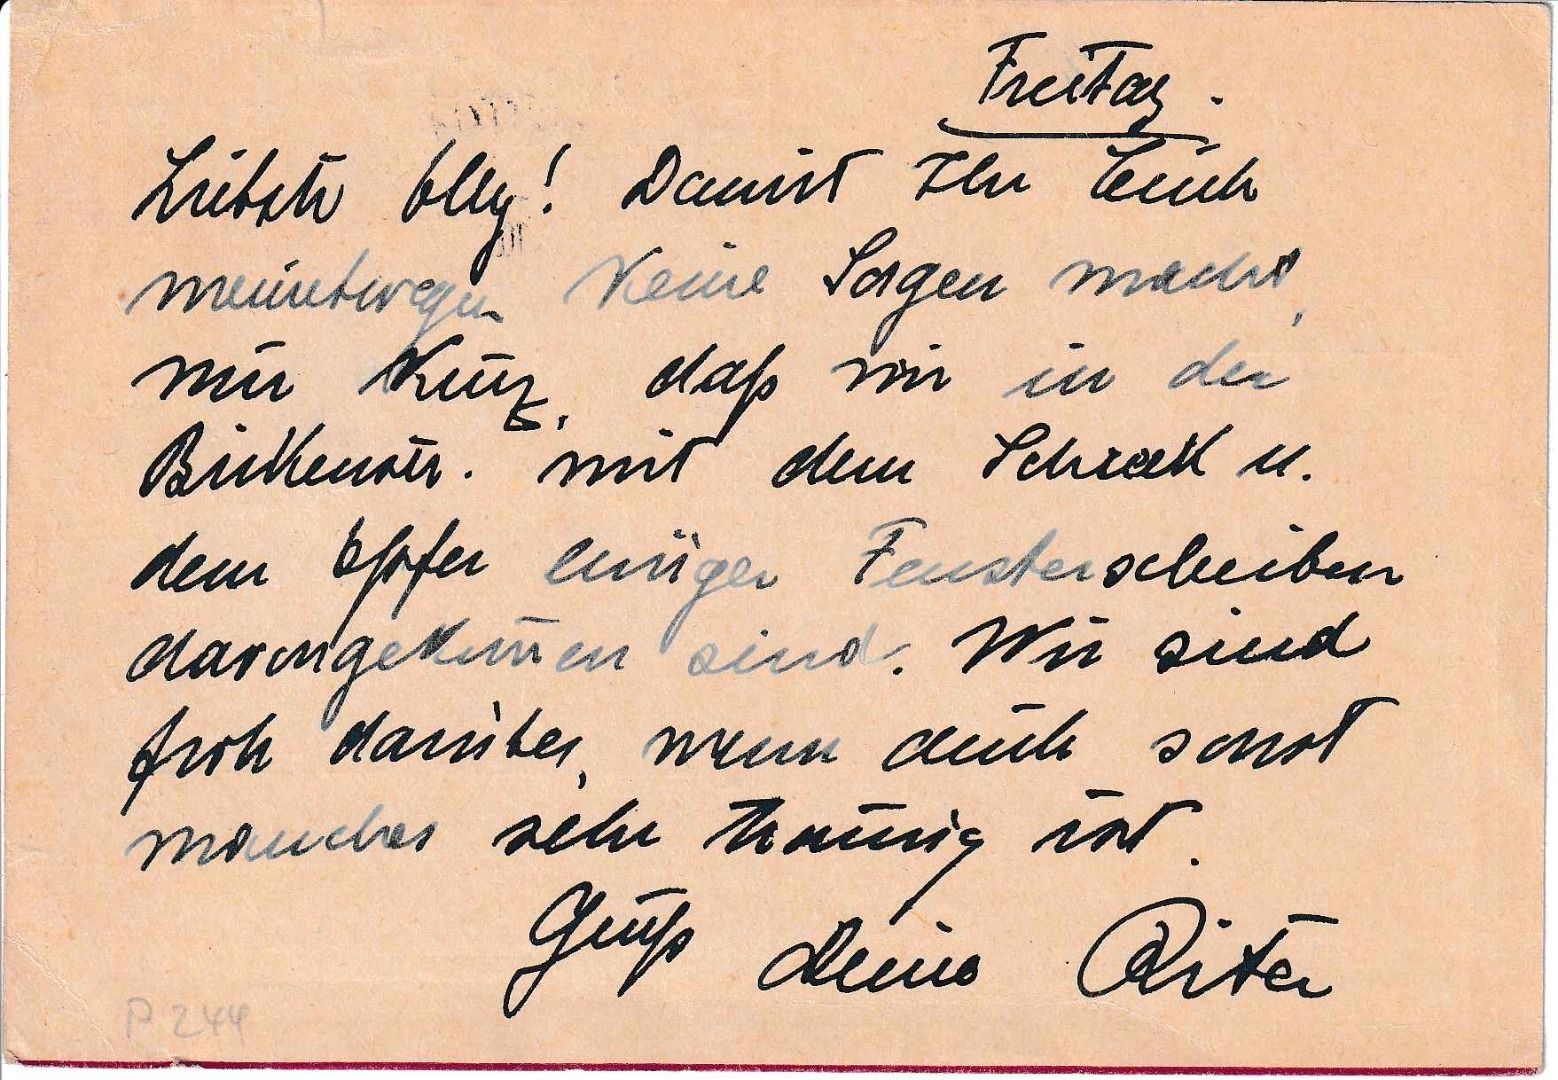 Freitag.
Liebste Elly! Damit Ihr Euch
meinetwegen keine Sorgen macht,
nur kurz, daß wir in der
Birkenstr. mit dem Schreck u.
dem Opfer einiger Fensterscheiben
davongekom̅en sind. Wir sind
froh darüber, wenn auch sonst
manches sehr traurig ist.
Gruß Deine Rita
P 244